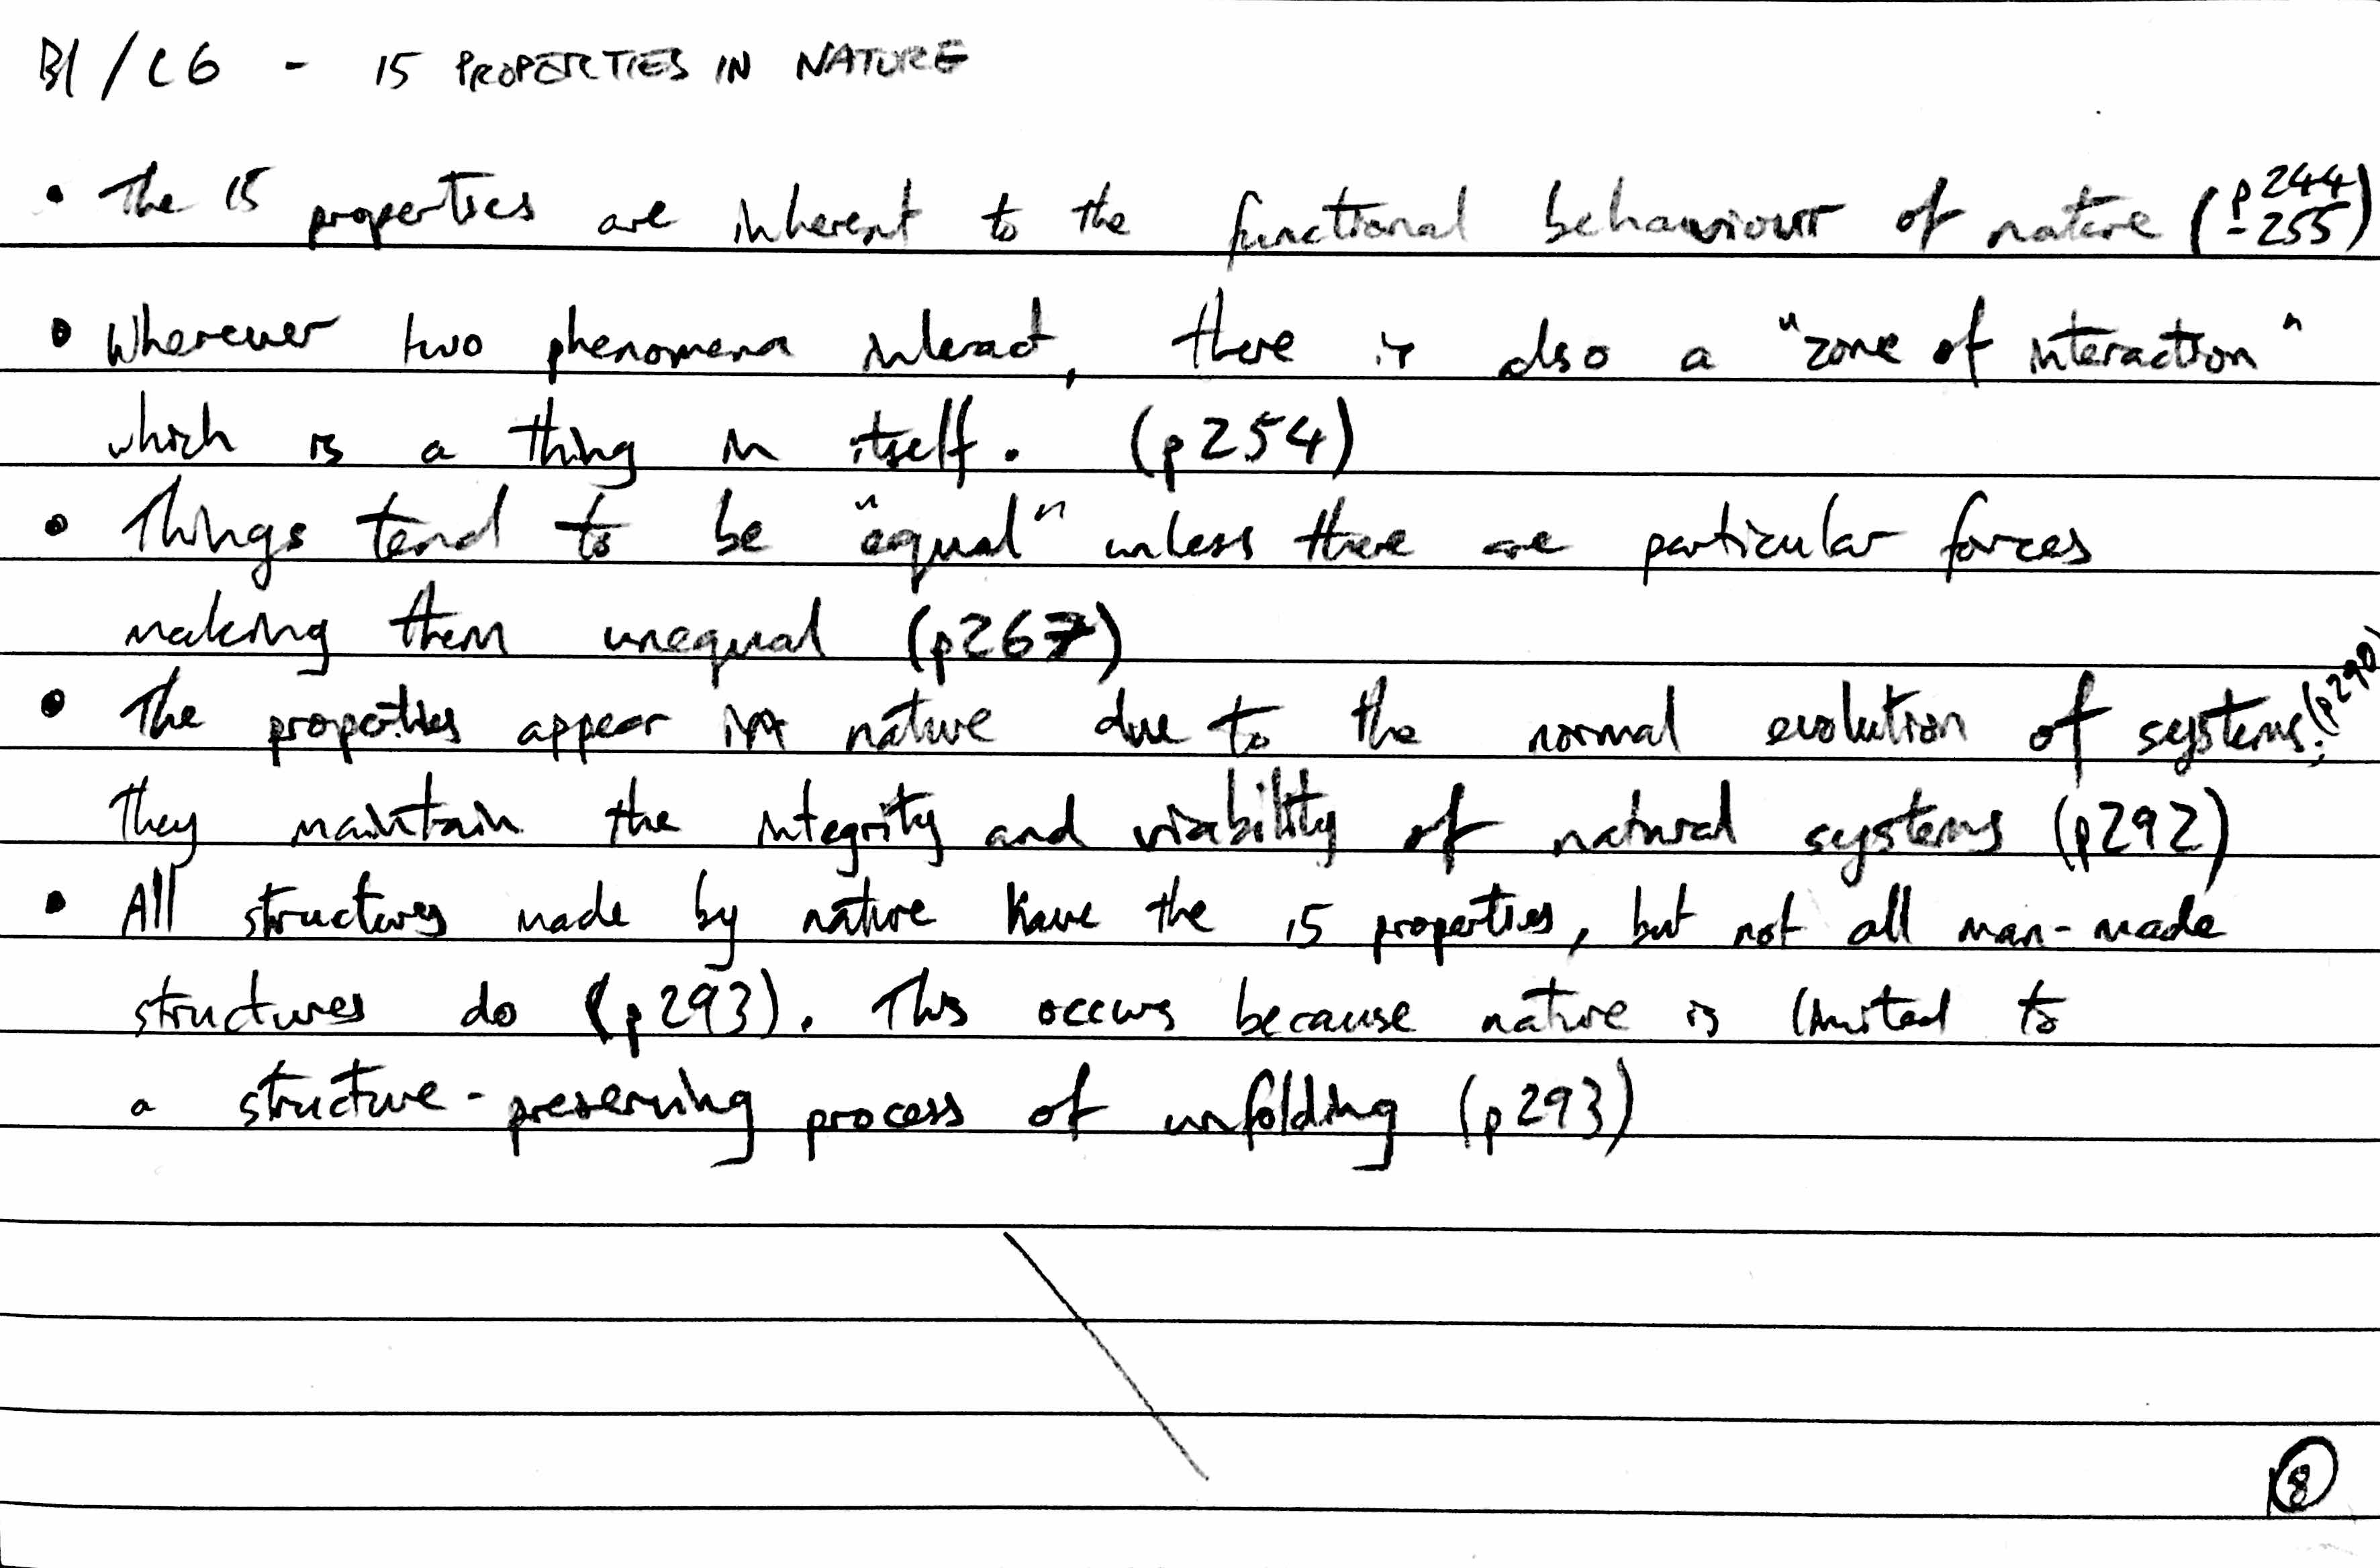 B1/C6 - 15 PROPERTIES IN NATURE
• The 15 properties are inherent to the functional behaviour of nature (p244-255)
• Wherever two phenomena interact, there is also a "zone of interaction"
which is a thing in itself. (p254)
• Things tend to be "equal" unless there are particular forces
making them unequal (p267)
• The properties appear in nature due to the normal evolution of systems; (p290)
They maintain the integrity and viability of natural systems (p292)
• All structures made by nature have the 15 properties, but not all man-made
structures do (p293). This occurs because nature is limited to
a structure-preserving process of unfolding (p293)
8